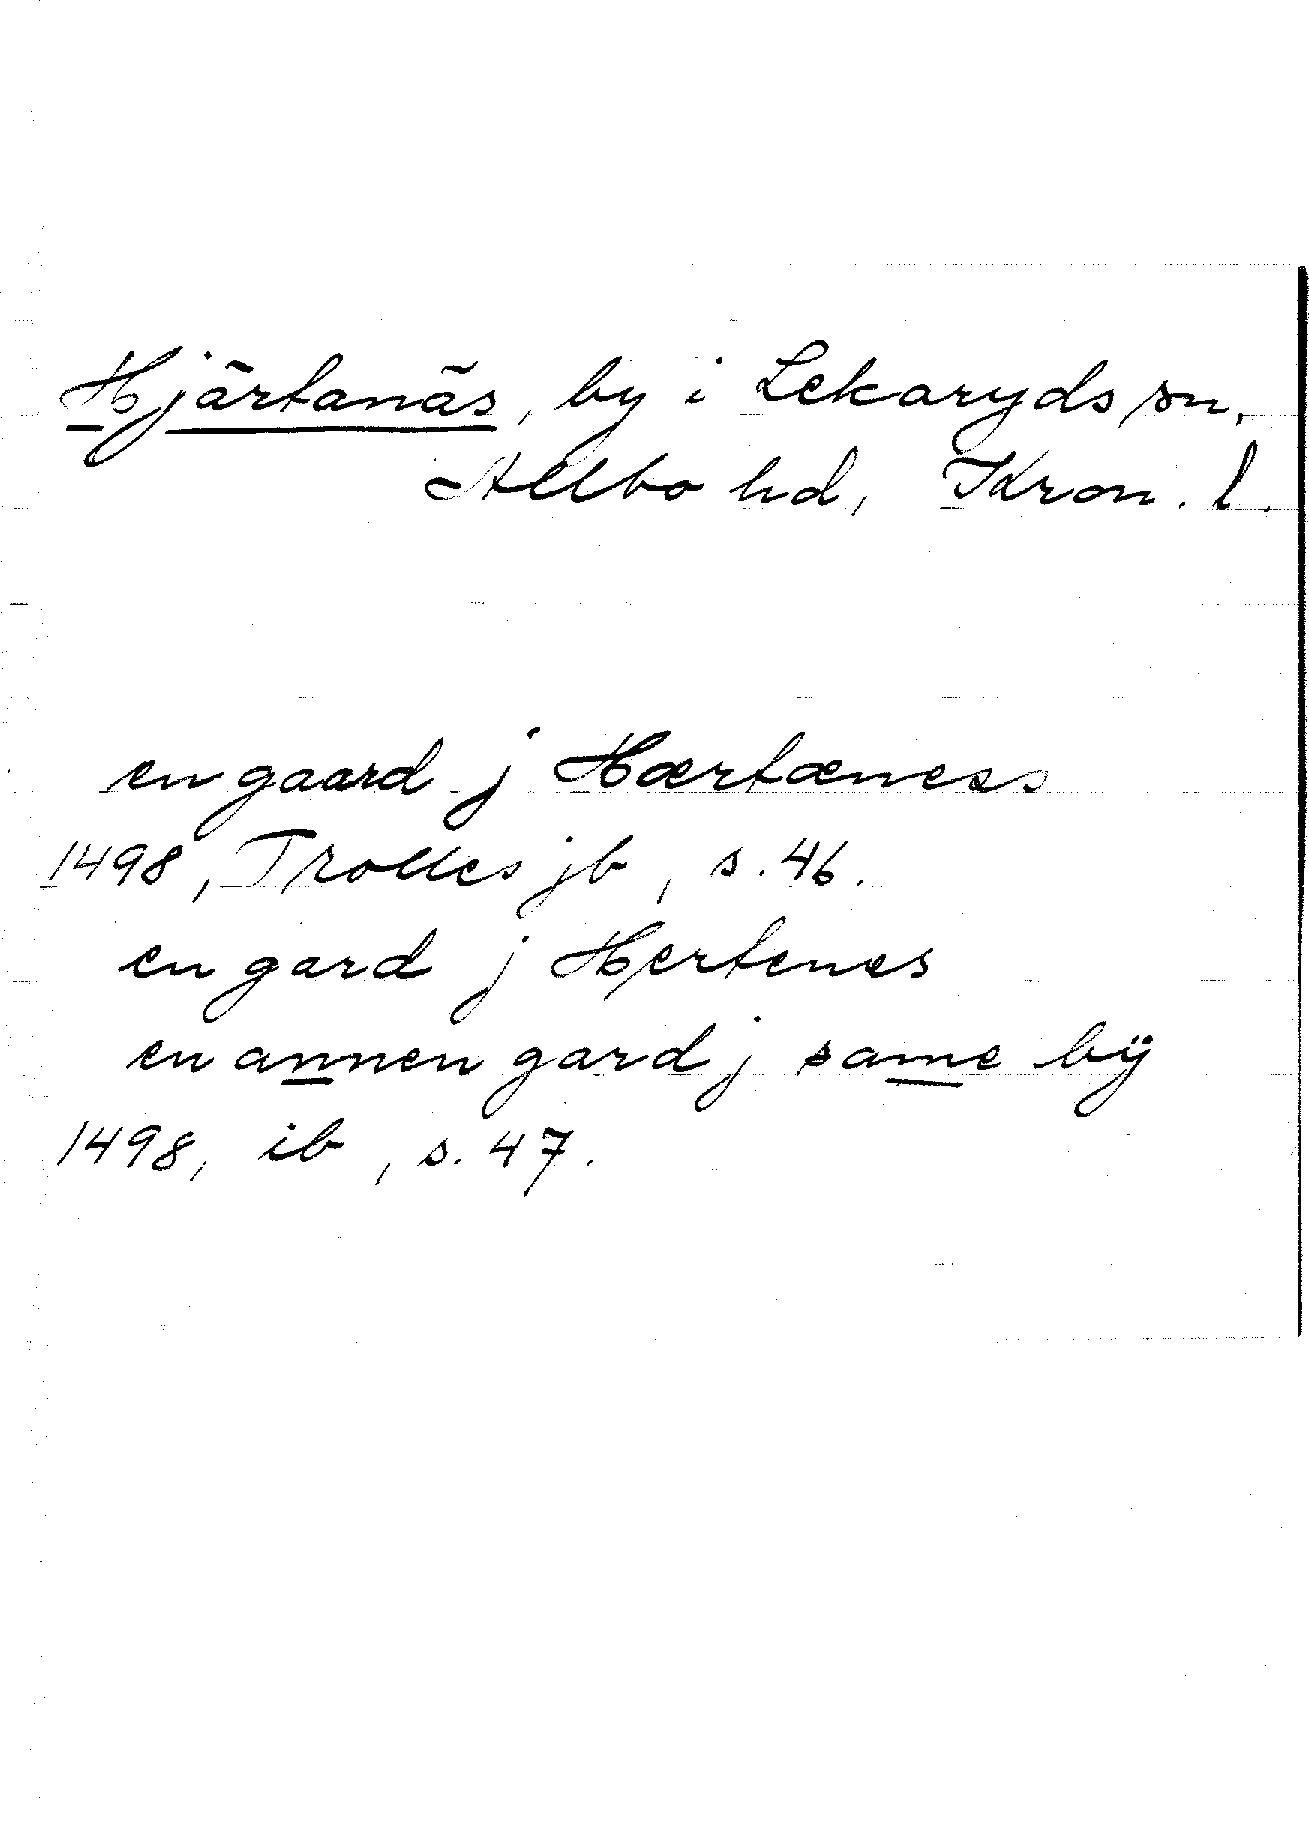 Hjärtanäs, by i Lekaryds sn,
Allbo hd, Kron. l.
en gaard j Hærtæness
1498, Trolles jb, s. 46.
en gard j Hertenes
en annen gard j same bÿ
1498, ib, s. 47.